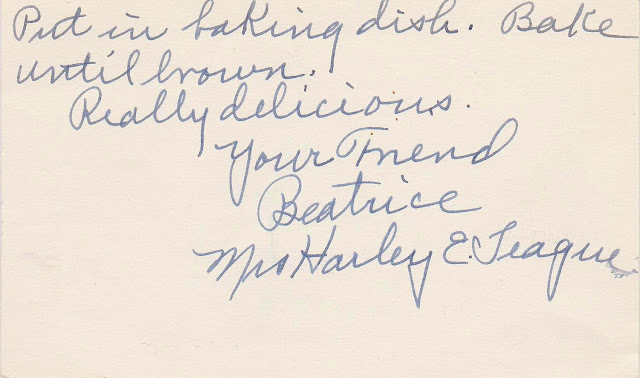 Put in baking dish. Bake
until brown.
Really delicious.
Your Friend
Beatrice
Mrs Harley E. Teague